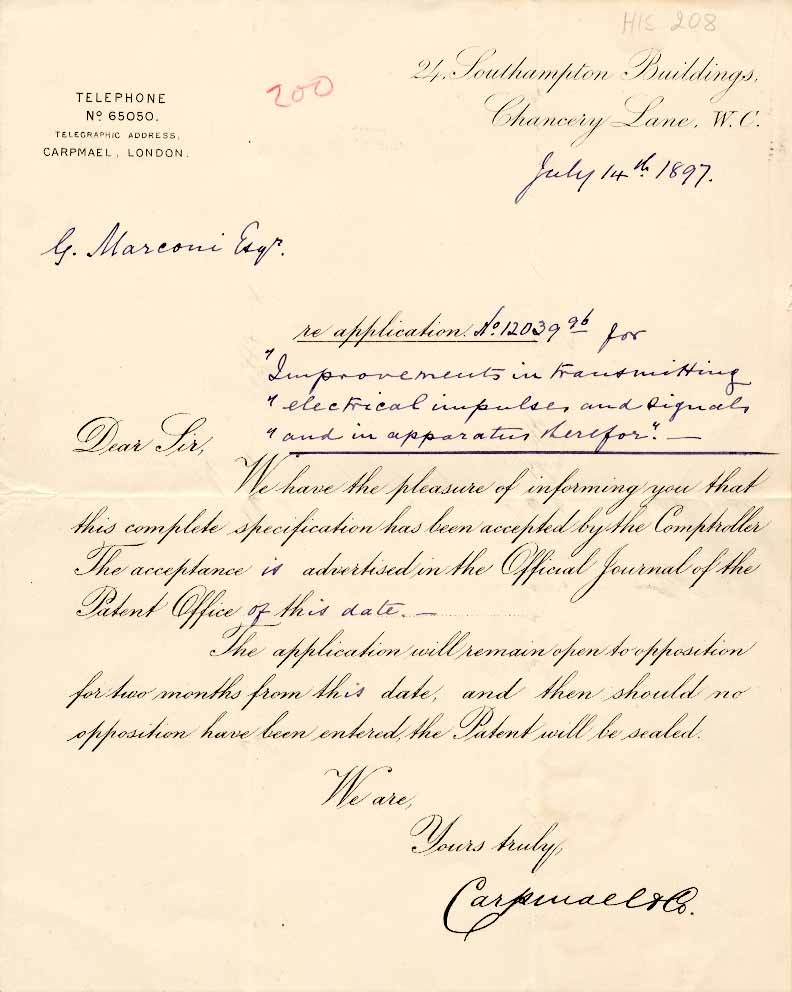 HIS 208
200
24, Southampton Buildings,
Chancery Lane, W.C.
TELEPHONE
No 65050.
TELEGRAPHIC ADDRESS,
CARPMAEL, LONDON.
July 14th 1897.
G. Marconi Esqr.
re application. No 12039 96 for
"Improvements in transmitting
" electrical impulses and signals
" and in apparatus therefor". —
Dear Sir,
We have the pleasure of informing you that
this complete specification has been accepted by the Comptroller
The acceptance is advertised in the Official Journal of the
Patent Office of this date. —
The application will remain open to opposition
for two months from this date, and then should no
opposition have been entered, the Patent will be sealed.
We are,
Yours truly,
Carpmael & Co.